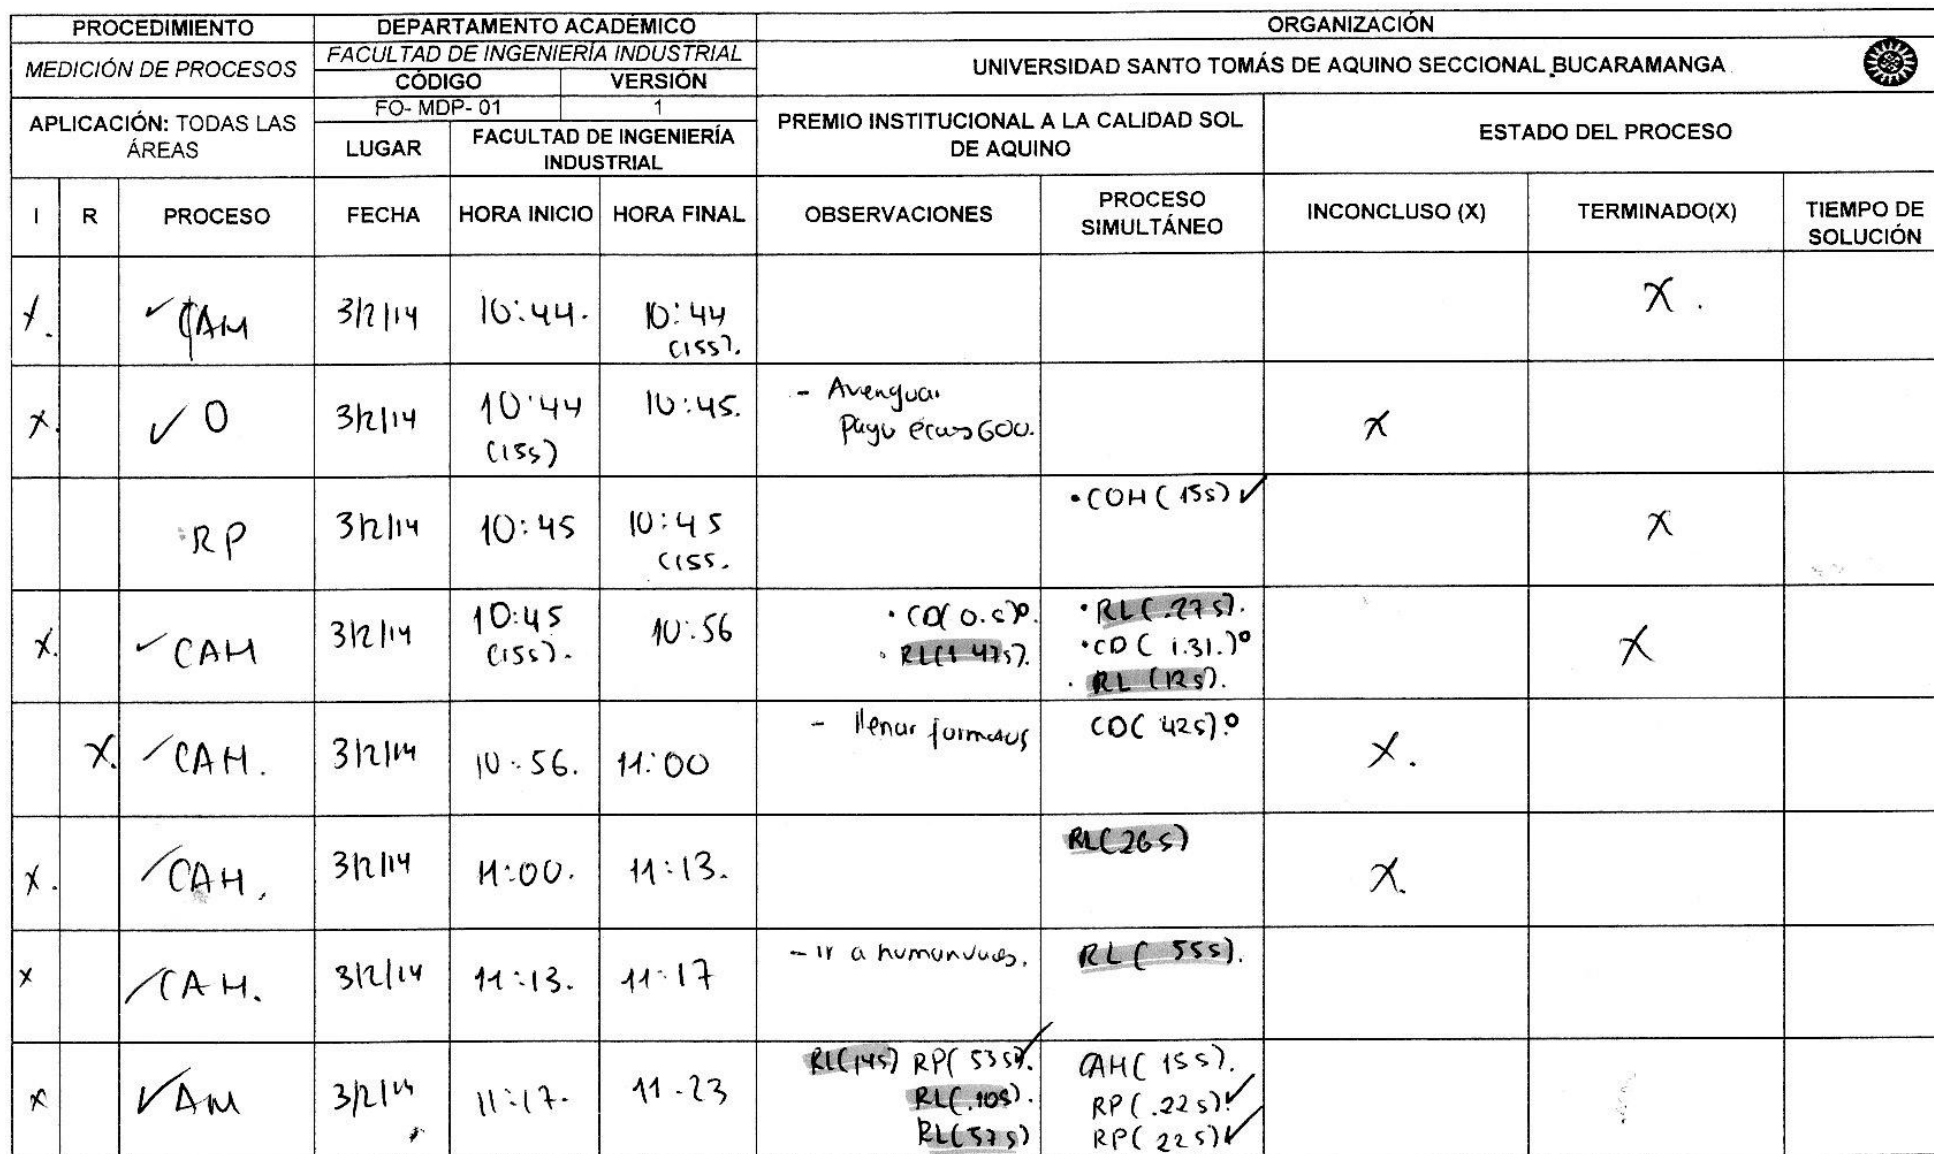 PROCEDIMIENTO DEPARTAMENTO ACADÉMICO ORGANIZACIÓN
MEDICIÓN DE PROCESOS FACULTAD DE INGENIERÍA INDUSTRIAL UNIVERSIDAD SANTO TOMÁS DE AQUINO SECCIONAL BUCARAMANGA
CÓDIGO VERSIÓN
FO- MDP- 01 1
APLICACIÓN: TODAS LAS ÁREAS LUGAR FACULTAD DE INGENIERÍA INDUSTRIAL PREMIO INSTITUCIONAL A LA CALIDAD SOL DE AQUINO ESTADO DEL PROCESO
I R PROCESO FECHA HORA INICIO HORA FINAL OBSERVACIONES PROCESO SIMULTÁNEO INCONCLUSO (X) TERMINADO(X) TIEMPO DE SOLUCIÓN
X. ✓ 3/2/14 10:44. 10:44 (15s). X.
X. ✓ O 3/2/14 10:44 (15s) 10:45. - Averiguar pago 600. X
RP 3/2/14 10:45 10:45 (15s. •COH (15s) ✓ X
X. ✓ CAH 3/2/14 10:45 (15s). 10:56 •RL(.27s). X
•CD (1.31.)°
• RL (12s).
X. ✓ CAH. 3/2/14 10:56. 11:00 - llenar formatos CO( 42s).° X.
X. ✓ CAH. 3/2/14 11:00. 11:13. RL(26s) X.
X ✓ CAH. 3/2/14 11:13. 11:17 - Ir a RL( 55s).
X ✓ AM 3/2/14 11:17. 11:23 RL(14s) RP( 53s)✓. CAH( 15s).
RL(.10s). RP(.22s).✓
RL(57s) RP(22s)✓